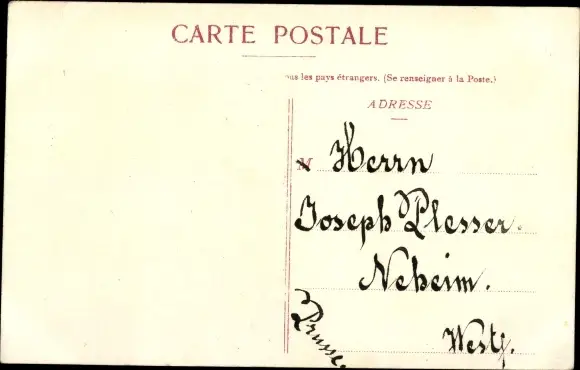 CARTE POSTALE
us les pays étrangers. (Se renseigner à la Poste.)
ADRESSE
M Herrn
Joseph Plesser.
Neheim.
Westf.
Prusse.